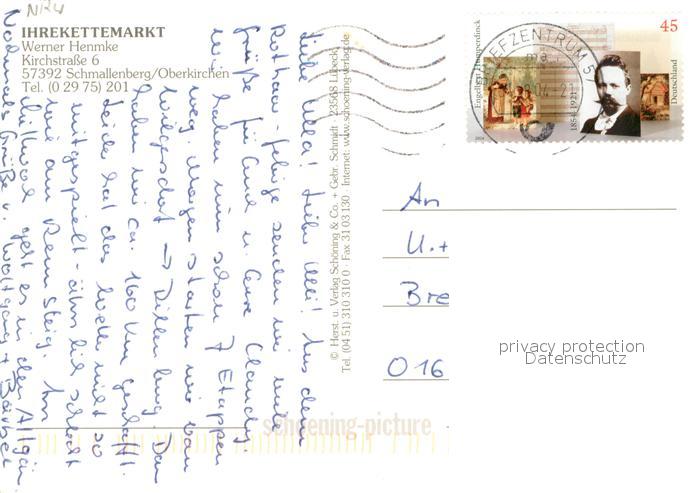 NRW
IHREKETTEMARKT
Werner Henmke
Kirchstraße 6
57392 Schmallenberg/Oberkirchen
Tel. (0 29 75) 201
Liebe Ulla! Lieber Ulli! Aus dem
Rothaar-gebirge senden wir viele
Grüße für Euch u. Eure Claudy
wir haben nun schon 7 Etappen
weg. Morgen starten wir von
→ Dillenburg. Dann
haben wir ca. 160 km geschafft.
Leider hat das Wetter nicht so
mitgespielt - ähnlich schlecht
wie am Rennsteig. Im
geht es in den Allgäu
Nochmals Grüße v. Wolfgang + Bärbel
© Herst. u. Verlag Schöning & Co. + Gebr. Schmidt · 23568 Lübeck
Tel. (04 51) 310 310 0 · Fax 31 03 130 · Internet: www.schoening-verlag.de
schoening-picture
BRIEFZENTRUM 5
Engelbert Humperdinck
1854-1921
45
Deutschland
An
U. +
Bre
0 16
privacy protection
Datenschutz